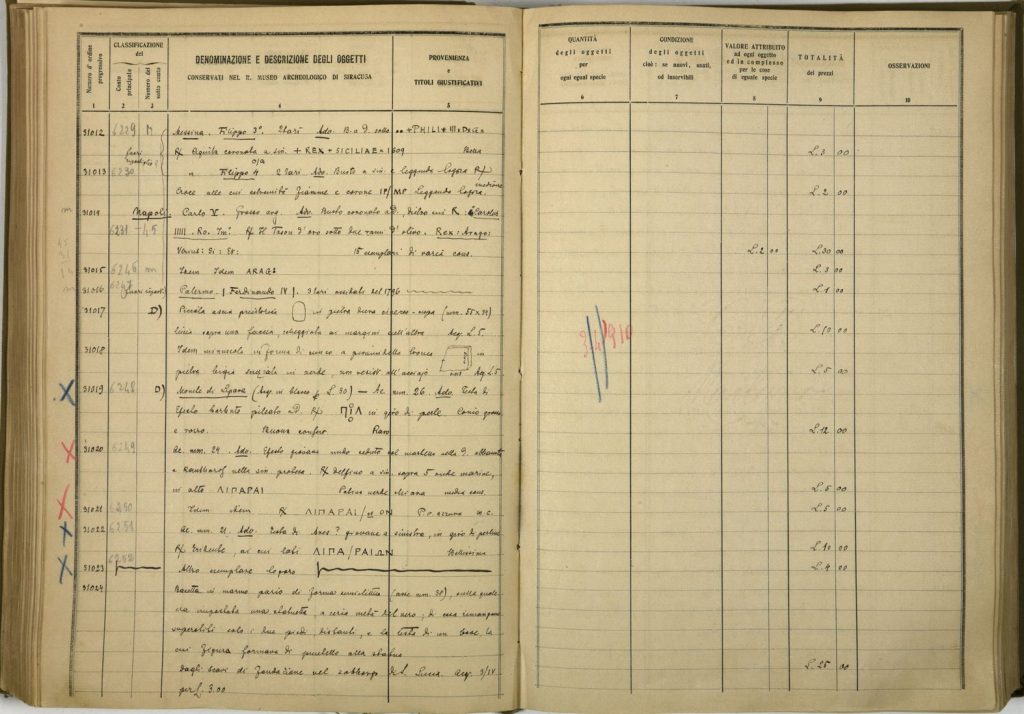 Numero d'ordine progressivo
CLASSIFICAZIONE
del
Conto principale
Numero del sotto conto
DENOMINAZIONE E DESCRIZIONE DEGLI OGGETTI
CONSERVATI NEL R. MUSEO ARCHEOLOGICO DI SIRACUSA
PROVENIENZA
e
TITOLI GIUSTIFICATIVI
1 2 3 4 5
QUANTITÀ
degli oggetti
per
ogni egual specie
CONDIZIONE
degli oggetti
cioè: se nuovi, usati,
od inservibili
VALORE ATTRIBUITO
ad ogni oggetto
ed in complesso
per le cose
di eguale specie
TOTALITÀ
dei prezzi
OSSERVAZIONI
6 7 8 9 10
31012 6229 M Messina. Filippo 3°. 2 tarì Ado. B. a D. sotto
R) Aquila coronata a sin. + REX + SICILIAE + 1609 L. 3 00
31013 6230 " Filippo 4 2 tarì. Ado. Busto a sin. e leggenda logora R)
Croce alle cui estremità fiamme e corone IP/MP Leggenda logora. L. 2 00
31014 Napoli. Carlo V. Grosso arg. Ado. Busto coronato a D., dietro cui R : Carolus
6231-45 IIIII. Ro. Im: R) Il Toson d'oro sotto due rami d'olivo. Rex: Arago:
15 esemplari di varia cons. L. 2 00 L. 30 00
31015 6246 m Idem Idem ARAG: L. 3 00
31016 6247 fuori Palermo. (Ferdinando IV). 3 tarì ossidati del 1796 L. 1 00
31017 D) Piccola ascia preistorica in pietra dura cinereo-nera
liscia sopra una faccia, scheggiata ai margini nell'altra Acq. L. 5. L. 10 00
31018 Idem minuscola in forma di cuneo a piramidetta tronca in
pietra bigia all'acciajo Acq. L. 5 L. 5 00
31019 6248 D) Monete di Lipara (Acq. in blocco p. L. 30) — Ae. mm. 26. Ado. Testa di
Efesto barbato pileato a D. R) in giro di perle. Conio grosso
e rozzo. Buona conserv. Raro L. 12 00
31020 6249 Ae. mm. 24. Ado. Efesto giovane nudo seduto col martello nella D. abbassata
e kantharos nella sin. protesa. R) Delfino a sin. sopra 5 onde marine,
in alto ΛΙΠΑΡΑΙ Patina verde oliva media cons. L. 5 00
31021 6250 Idem Idem R) ΛΙΠΑΡΑΙ/ΟΝ P. azzurra m. c. L. 5 00
31022 6251 Ae. mm. 21. Ado. Testa di Ares? giovane a sinistra, in giro di perline
R) Tridente, ai cui lati ΛΙΠΑ/ΡΑΙΩΝ Bellissima L. 10 00
31023 6252 Altro esemplare logoro L. 4 00
31024 Basetta in marmo pario di forma semielittica (asse mm. 38), sulla quale
era impostata una statuetta, a circa metà del vero; di essa rimangono
superstiti solo i due piedi, distanti, e la testa di un
cui figura formava di puntello alla statua
dagli scavi di fondazione nel sobborgo di S. Lucia. Acq. L. 25 00
per L. 3.00
3/4/910